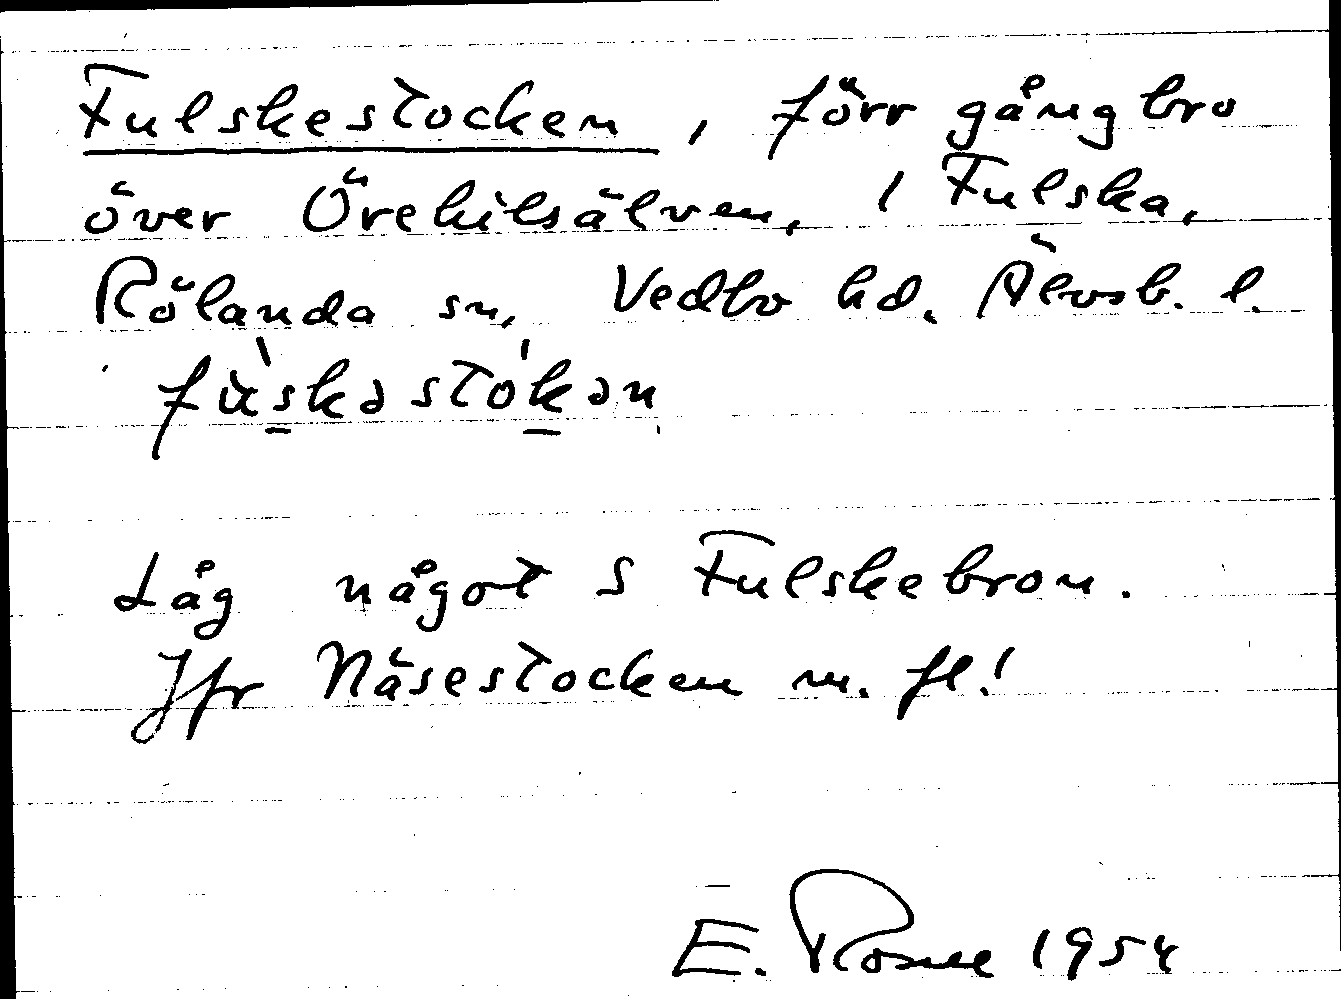 Fulskestocken, förr gångbro
över Örekilsälven, i Fulska,
Rölanda sn, Vedbo hd. Älvsb. l.
fùskəstókən
Låg något S Fulskebron.
Jfr Näsestocken m. fl!
E. Rosell 1954